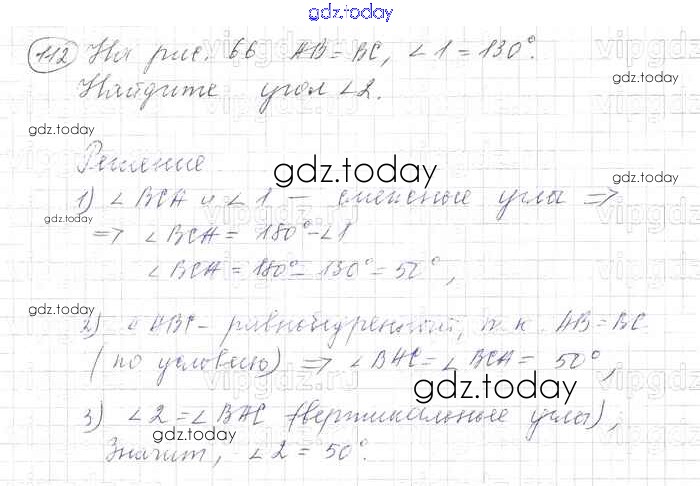 gdz.today
112 На рис. 66 AB = BC, ∠1 = 130°.
Найдите угол ∠2.
gdz.today
gdz.today
Решение
gdz.today
1) ∠BCA и ∠1 — смежные углы ⇒
gdz.today
⇒ ∠BCA = 180° - ∠1
∠BCA = 180° - 130° = 50°,
gdz.today
2) △ABC - равнобедренный, т.к. AB = BC
(по условию) ⇒ ∠BAC = ∠BCA = 50°,
gdz.today
gdz.today
3) ∠2 = ∠BAC (вертикальные углы),
gdz.today
Значит, ∠2 = 50°.